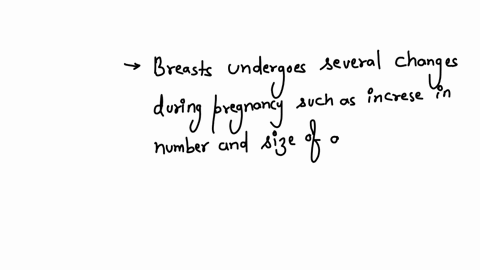 → Breasts undergoes several changes
during pregnancy such as increse in
number and size of a